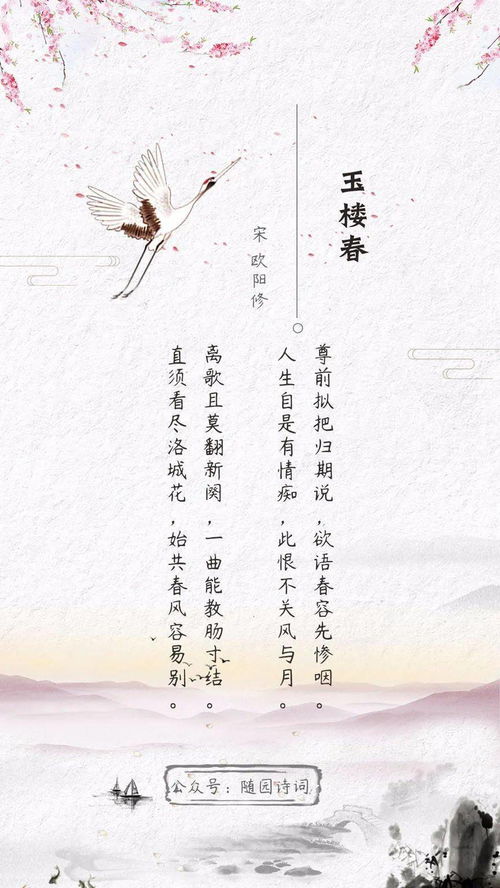 玉楼春
宋 欧阳修
尊前拟把归期说，欲语春容先惨咽。
人生自是有情痴，此恨不关风与月。
离歌且莫翻新阕，一曲能教肠寸结。
直须看尽洛城花，始共春风容易别。
公众号：随园诗词